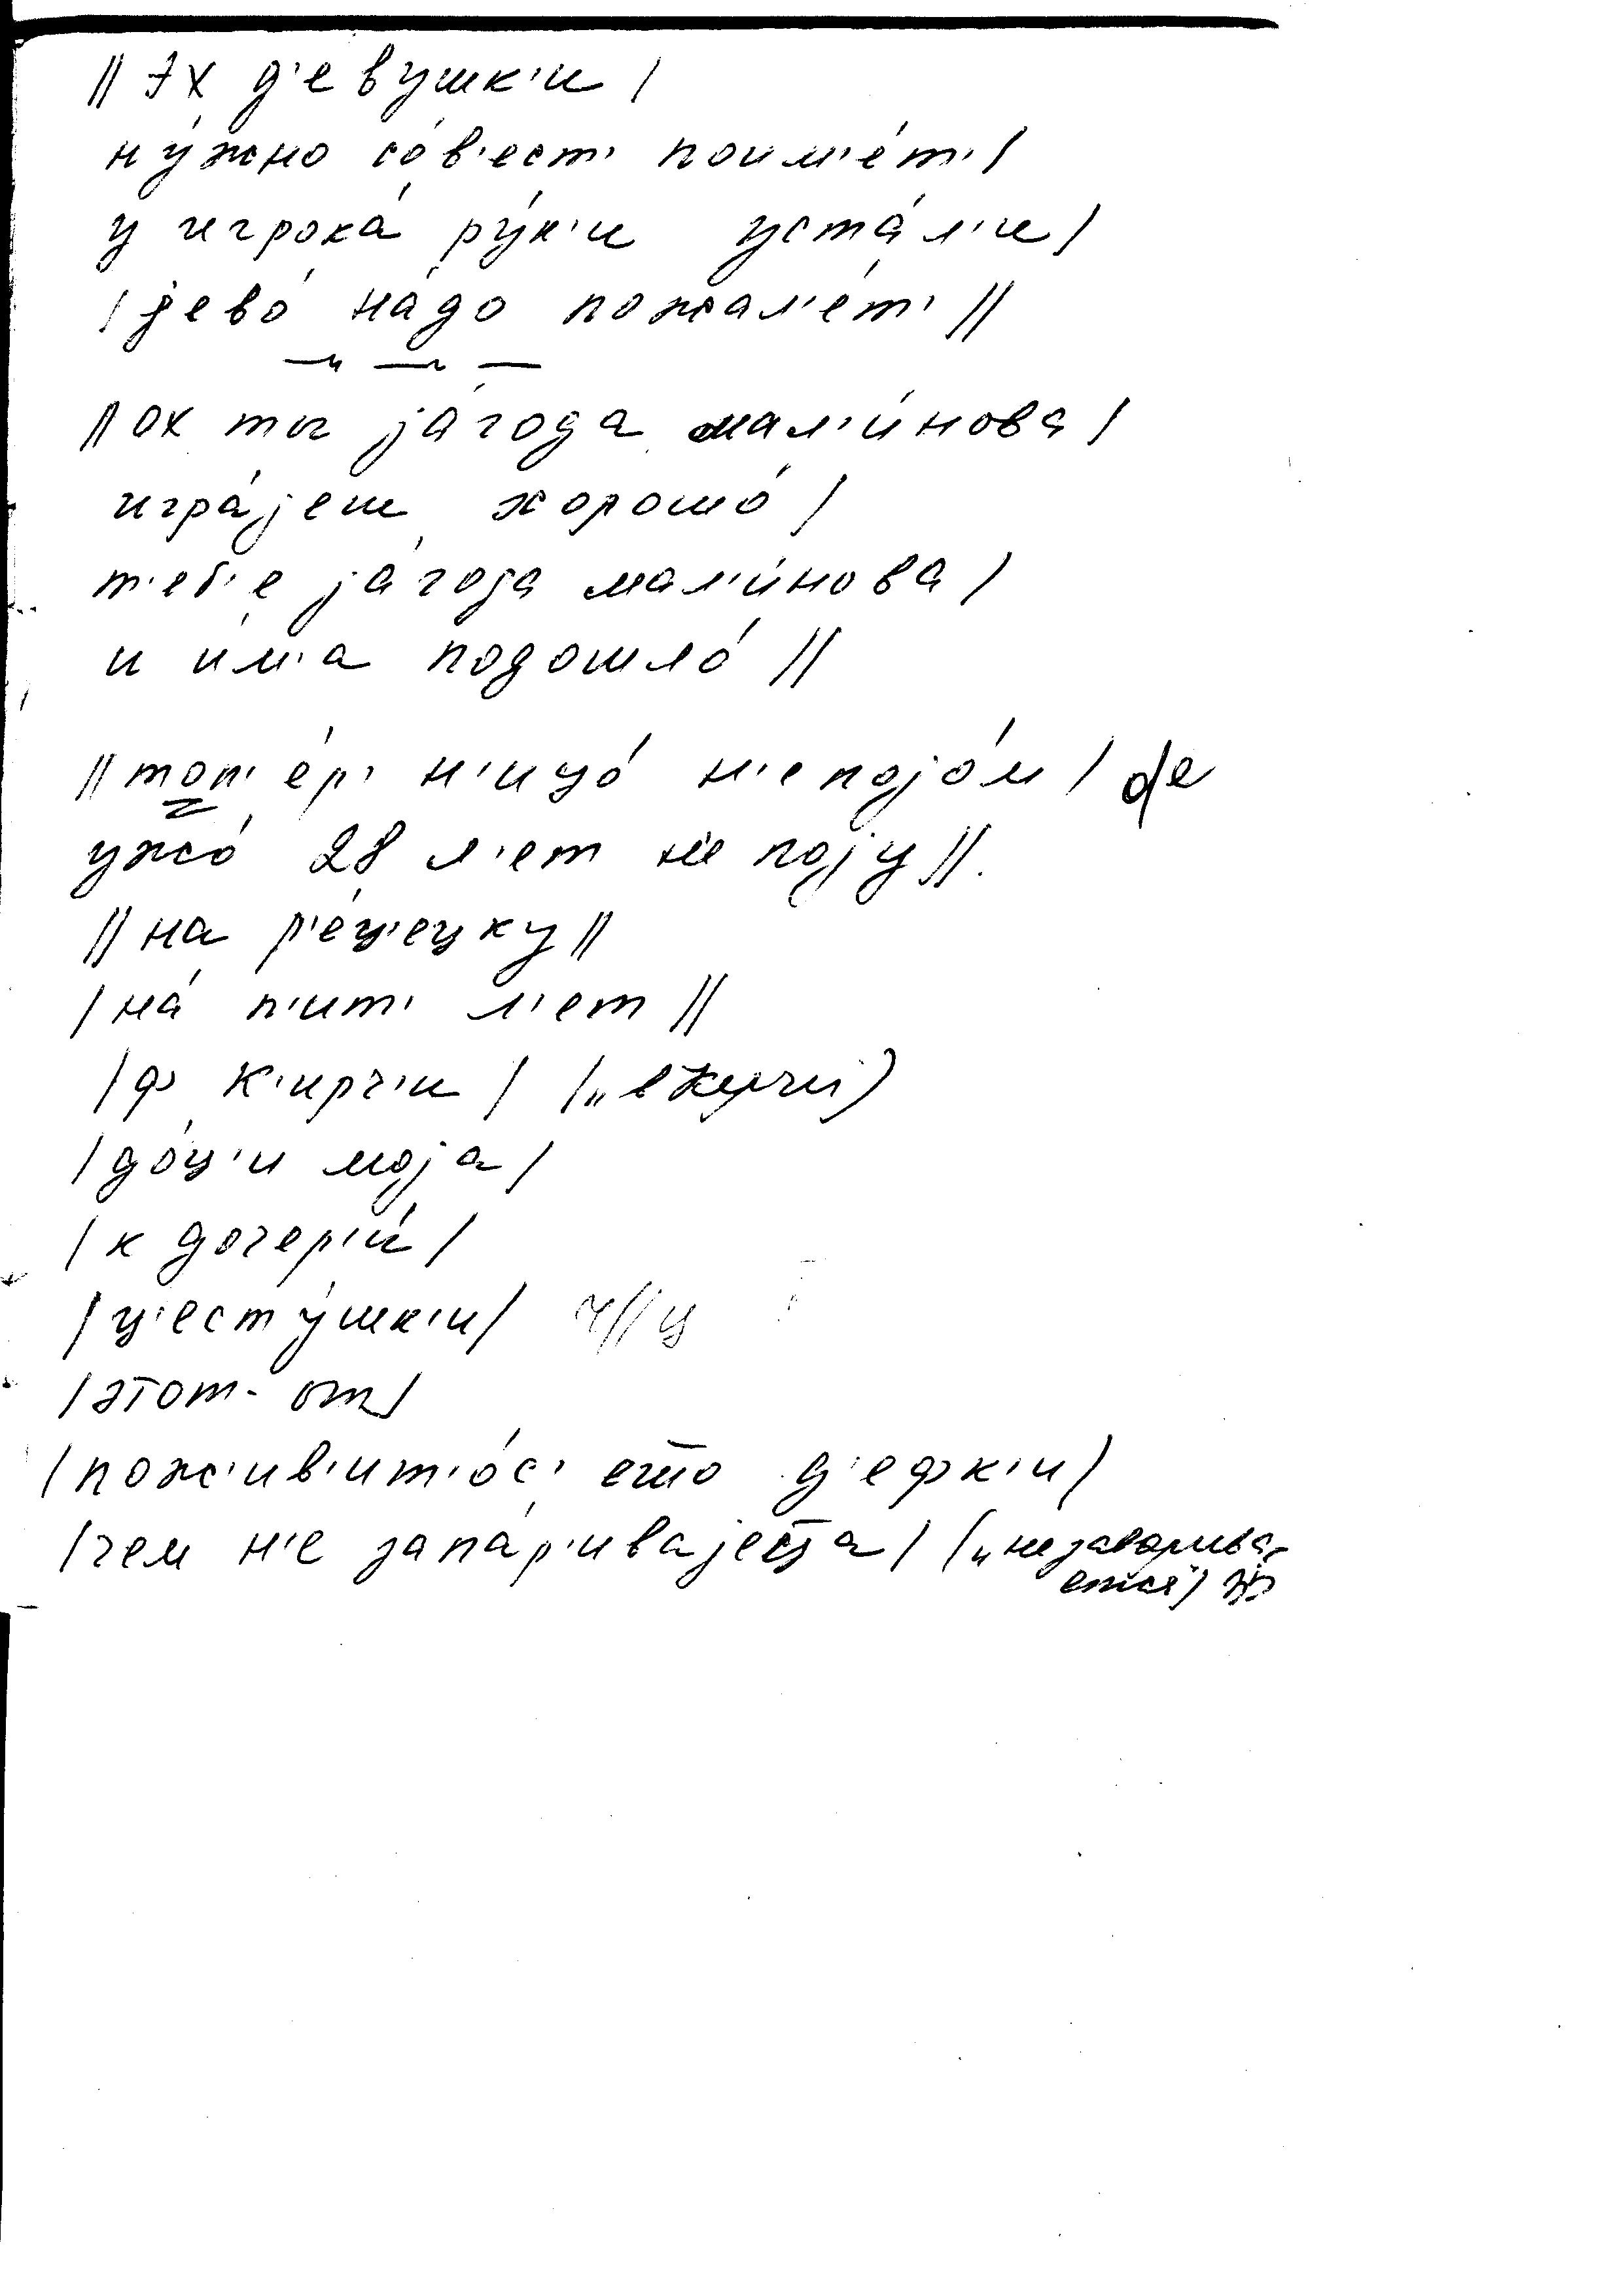 || Эх д'евушк'и |
ну́жно со́в'ест' поим'е́т' |
у игрока́ ру́к'и уста́л'и |
| јево́ на́до пожал'е́т' ||
|| ох ты ја́года мал'и́нова |
игра́јеш хорошо́ |
т'еб'е ја́года мал'и́нова |
и и́м'а подошло́ ||
|| топ'е́р' н'ицо́ н'е појо́м |
ужо́ 28 л'ет не поју ||.
|| на р'е́ц'ецку ||
| на́ п'ит' л'ет ||
| ф К'ирч'и | („в Керчи)
| до́ц'и моја |
| к дочер'и́ |
| ц'есту́шк'и | ч // ц
| этот- от |
| пож'ив'ит'о́с' ешо д'ефк'и |
| чем н'е запа́р'ивајеца | („не заварива-
ется")